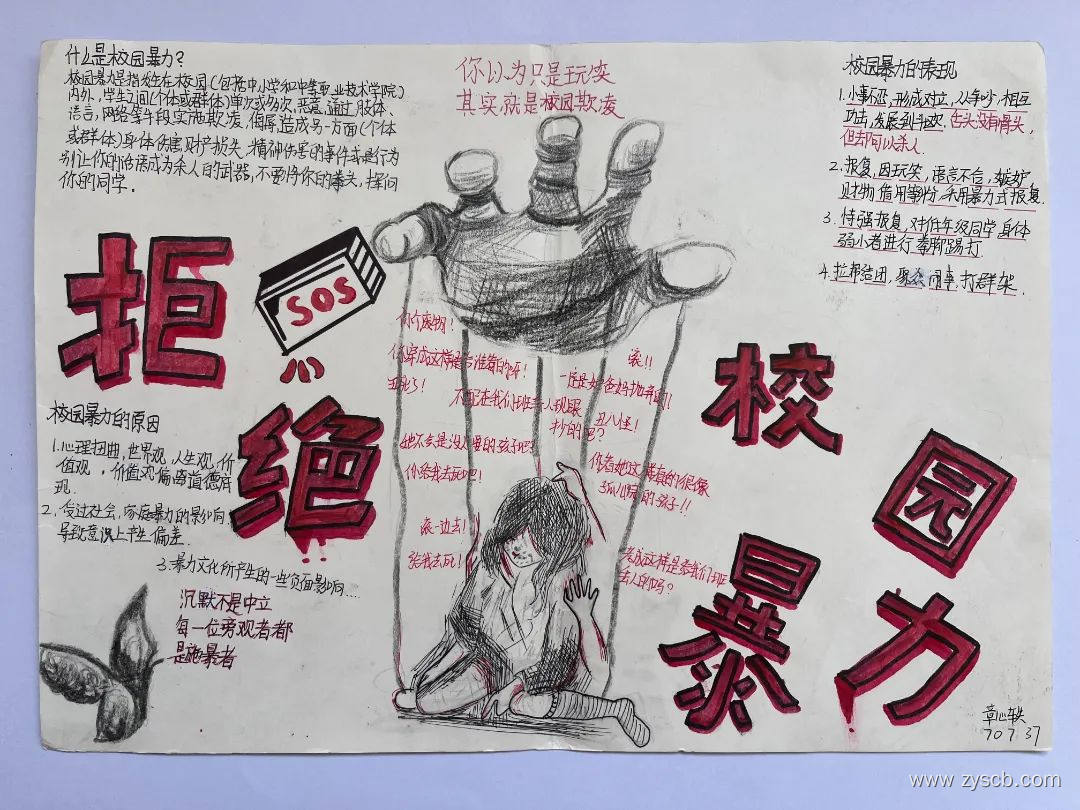 什么是校园暴力?
校园暴力是指发生在校园(包括中小学和中等职业技术学院)
内外,学生之间(个体或群体)单次或多次,恶意通过肢体、
语言,网络等手段实施欺凌,侮辱,造成另一方面(个体
或群体)身体伤害财产损失、精神伤害的事件或是行为
别让你的话语成为杀人的武器,不要将你的拳头,挥向
你的同学.
你以为只是玩笑
其实就是校园欺凌
校园暴力的表现
1.小事不忍,形成对立,从争吵,相互
攻击,发展到斗殴.舌头没有骨头,
但却可以杀人.
2.报复,因玩笑,语言不合,嫉妒
财物借用等纷,采用暴力式报复.
3.恃强报复,对低年级同学身体
弱小者进行拳脚踢打
4.拉帮结团,聚众闹事,打群架.
拒绝
校园暴力
SOS
你个废物!
滚!!
一定是被爸妈抛弃的!!
丑八怪!
你给我去死吧!
滚一边去!
给我去死!
校园暴力的原因
1.心理扭曲,世界观,人生观,价
值观,价值观偏离道德
现.
2.受过社会,家庭暴力的影响,
导致意识上产生偏差.
3.暴力文化所产生的一些负面影响....
沉默不是中立
每一位旁观者都
是施暴者
www.zyscb.com